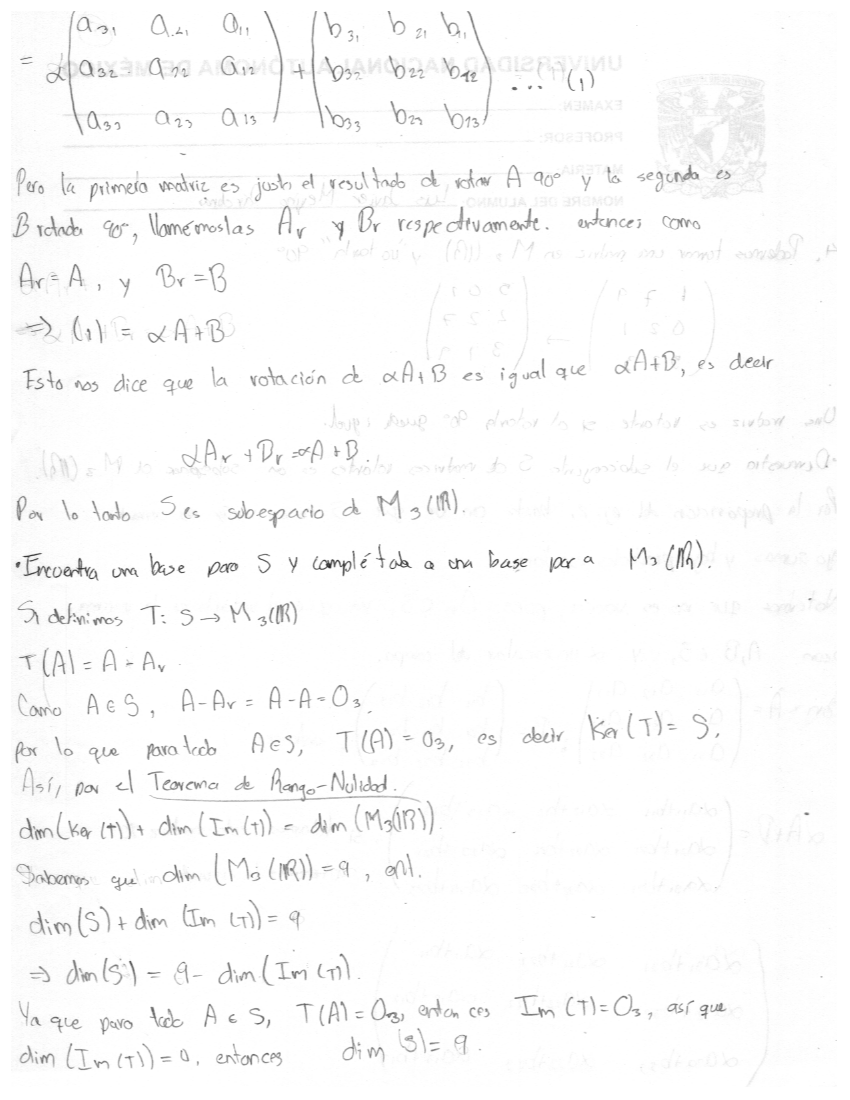 = α(a31 a21 a11 / a32 a22 a12 / a33 a23 a13) + (b31 b21 b11 / b32 b22 b12 / b33 b23 b13) ... (1)
Pero la primera matriz es justo el resultado de rotar A 90° y la segunda es
B rotada 90°, llamémoslas Ar y Br respectivamente. entonces como
Ar = A, y Br = B
⇒ (1) = αA+B
Esto nos dice que la rotación de αA+B es igual que αA+B, es decir
αAr + Br = αA + B.
Por lo tanto S es subespacio de M3(IR).
• Encuentra una base para S y complétala a una base para M3(IR).
Si definimos T: S → M3(IR)
T(A) = A - Ar
Como A ∈ S, A - Ar = A - A = O3
por lo que para todo A ∈ S, T(A) = O3, es decir Ker(T) = S.
Así, por el Teorema de Rango-Nulidad.
dim(Ker(T)) + dim(Im(T)) = dim(M3(IR))
Sabemos que dim(M3(IR)) = 9, ent.
dim(S) + dim(Im(T)) = 9
⇒ dim(S) = 9 - dim(Im(T)).
Ya que para todo A ∈ S, T(A) = O3, entonces Im(T) = O3, así que
dim(Im(T)) = 0, entonces dim(S) = 9.